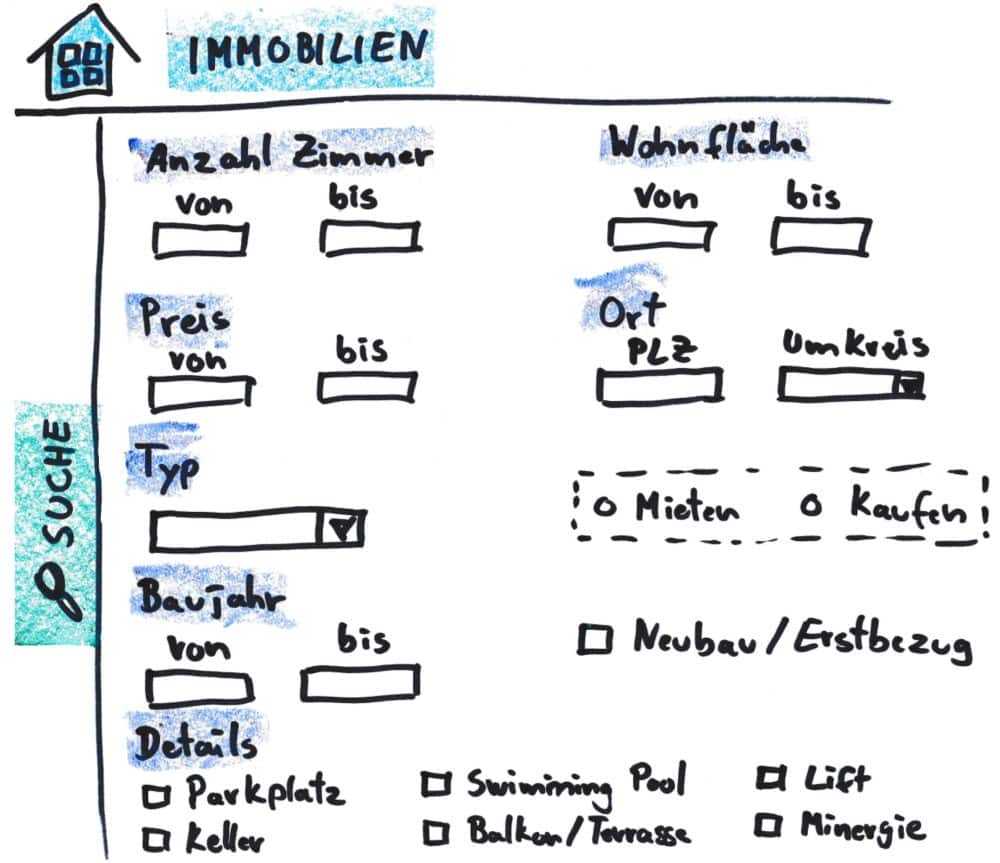 IMMOBILIEN
Anzahl Zimmer
von bis
Wohnfläche
von bis
Preis
von bis
Ort
PLZ Umkreis
SUCHE
Typ
Mieten Kaufen
Baujahr
von bis
Neubau/Erstbezug
Details
Parkplatz Swimming Pool Lift
Keller Balkon/Terrasse Minergie